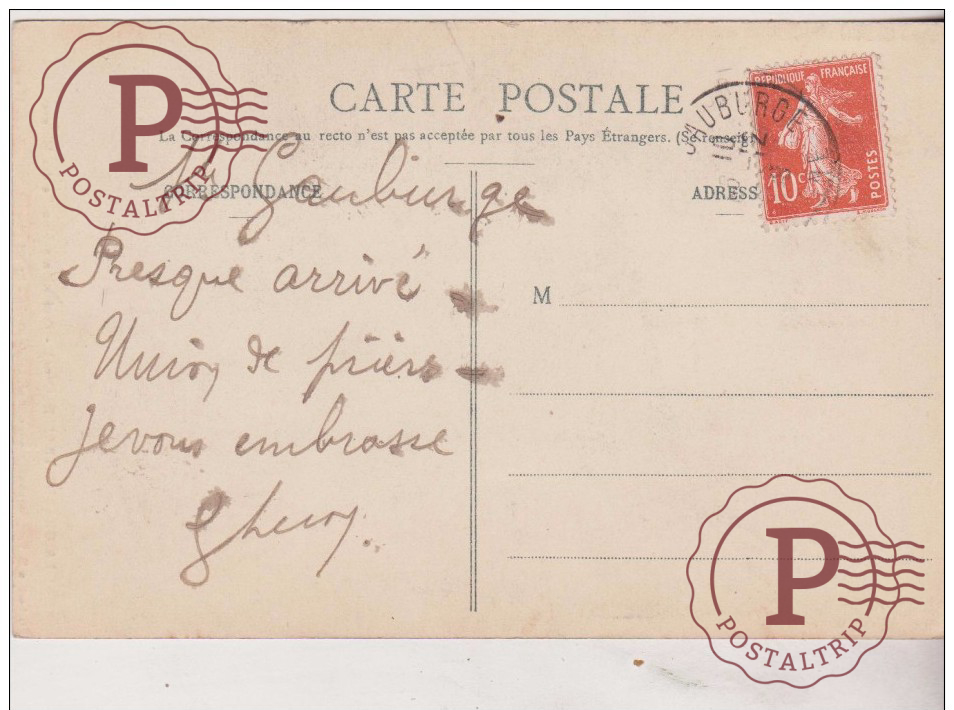 CARTE POSTALE
La Correspondance au recto n'est pas acceptée par tous les Pays Étrangers. (Se renseign
CORRESPONDANCE
Gauburge
Presque arrivé
Union de prières
Je vous embrasse
ADRESS
M
RÉPUBLIQUE FRANÇAISE
10 c
POSTES
GAUBURGE
P
POSTALTRIP
P
POSTALTRIP